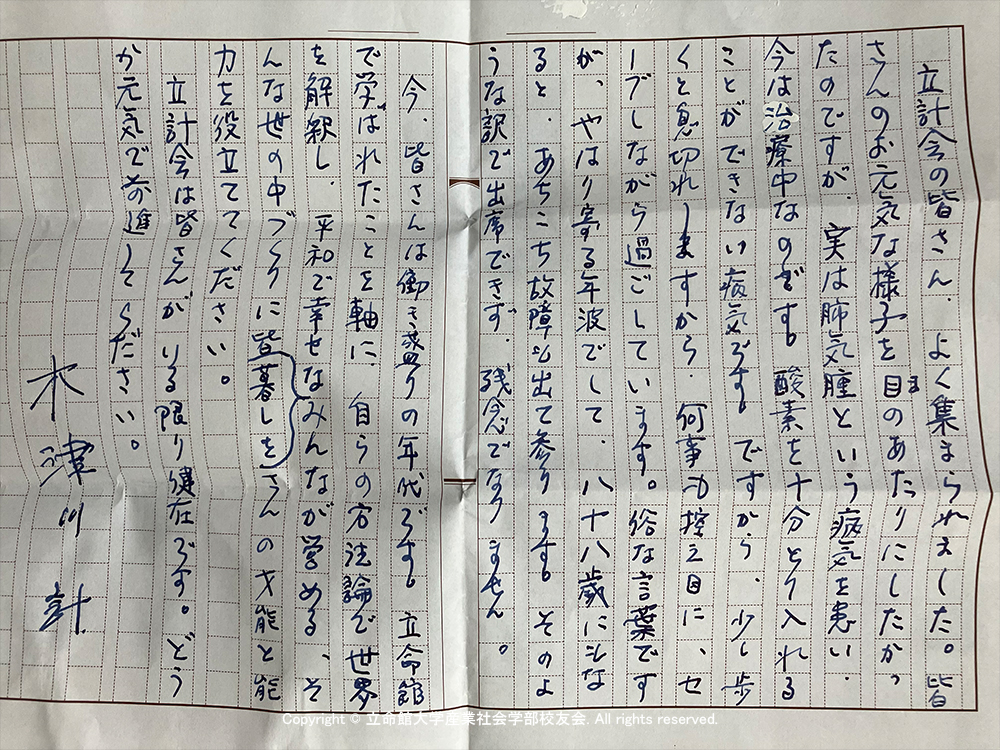 立計会の皆さん、よく集まられました。皆
さんのお元気な様子を目のあたりにしたかっ
たのですが、実は肺気腫という病気を患い、
今は治療中なのです。酸素を十分とり入れる
ことができない病気です。ですから、少し歩
くと息切れしますから、何事も控え目に、セ
ーブしながら過ごしています。俗な言葉です
が、やはり寄る年波でして、八十八歳にもな
ると、あちこち故障も出て参ります。そのよ
うな訳で出席できず、残念でなりません。
今、皆さんは働き盛りの年代です。立命館
で学ばれたことを軸に、自らの方法論で世界
を解釈し、平和で幸せなみんなが営める、そ
んな世の中づくりに皆暮しをさんの才能と能
力を役立ててください。
立計会は皆さんがいる限り健在です。どう
か元気で前進してください。
木津川 計
Copyright © 立命館大学産業社会学部校友会. All rights reserved.